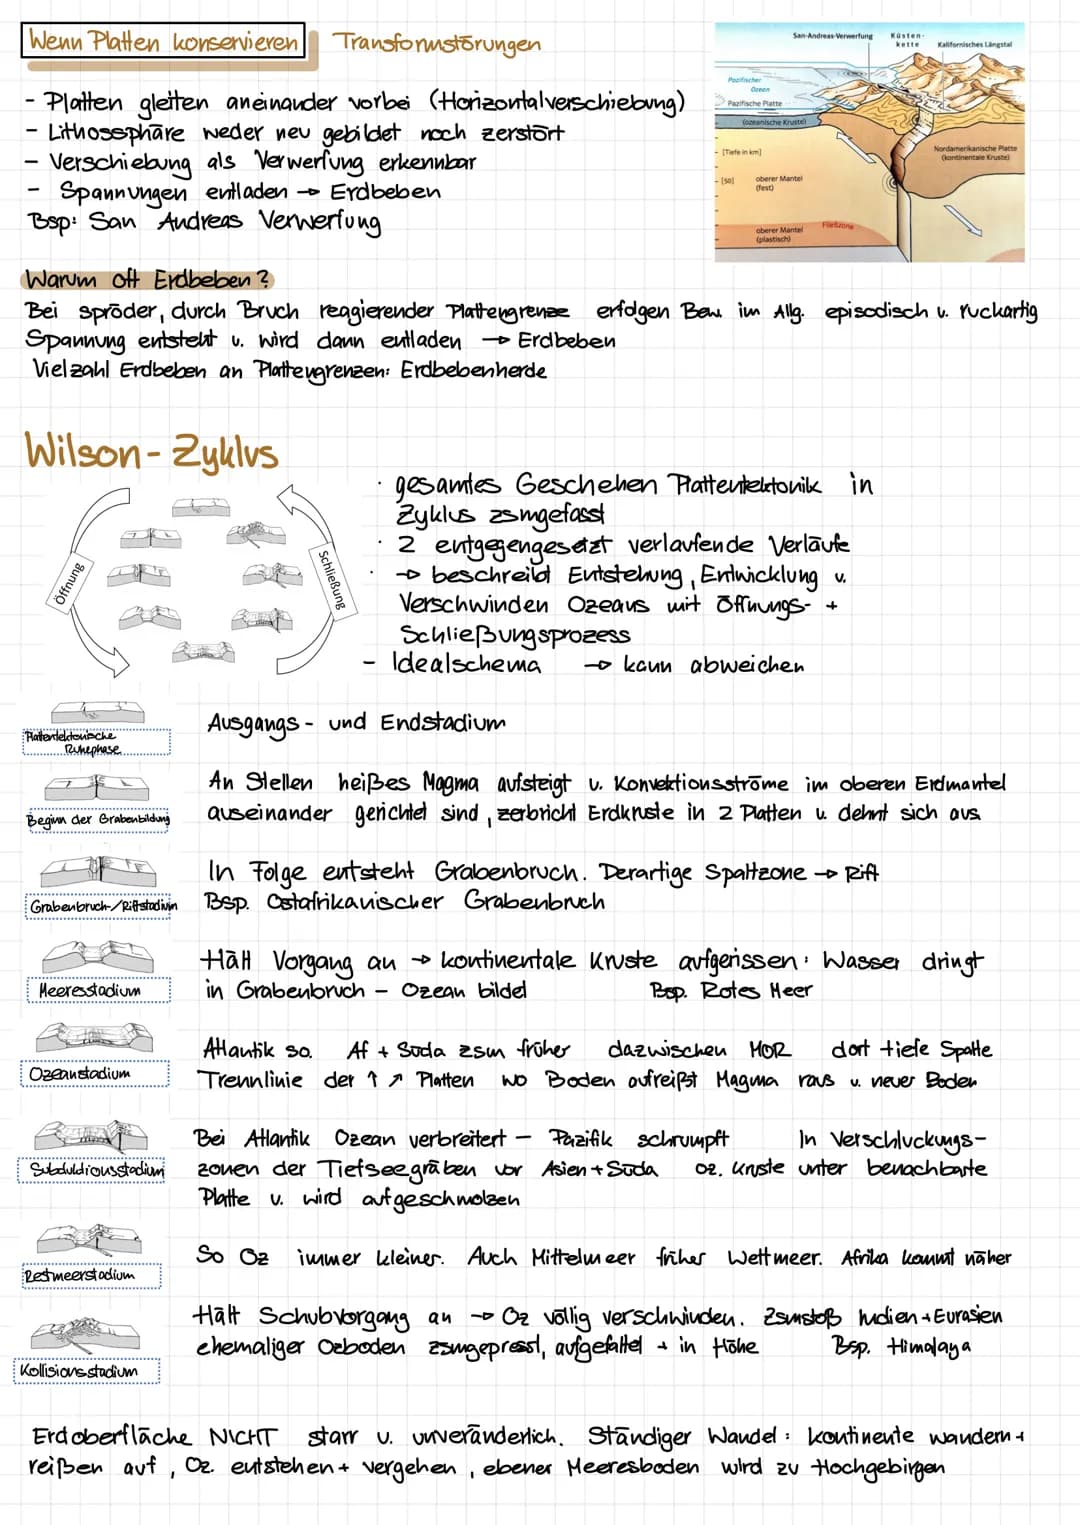 Wenn Platten konservieren Transformstörungen
- Platten gleiten aneinander vorbei (Horizontalverschiebung)
- Lithossphäre weder neu gebildet noch zerstört
- Verschiebung als Verwerfung erkennbar
- Spannungen entladen → Erdbeben
Bsp: San Andreas Verwerfung
San-Andreas-Verwerfung
Küsten-
kette
Kalifornisches Längstal
Pazifischer
Ozean
Pazifische Platte
(ozeanische Kruste)
[Tiefe in km]
[50]
oberer Mantel
(fest)
Nordamerikanische Platte
(kontinentale Kruste)
Fließzone
oberer Mantel
(plastisch)
Warum oft Erdbeben?
Bei spröder, durch Bruch reagierender Plattengrenze erfolgen Bew. im Allg. episodisch u. ruckartig
Spannung entsteht u. wird dann entladen → Erdbeben
Vielzahl Erdbeben an Plattengrenzen: Erdbebenherde
Wilson-Zyklus
Öffnung
Schließung
· gesamtes Geschehen Plattentektonik in
Zyklus zsmgefasst
· 2 entgegengesetzt verlaufende Verläufe
· → beschreibt Entstehung, Entwicklung u.
Verschwinden Ozeans mit Öffnungs- +
Schließungsprozess
- Idealschema → kann abweichen
Plattentektonische
Ruhephase
Ausgangs- und Endstadium
Beginn der Grabenbildung
An Stellen heißes Magma aufsteigt u. Konvektionsströme im oberen Erdmantel
auseinander gerichtet sind, zerbricht Erdkruste in 2 Platten u. dehnt sich aus
Grabenbruch-/Riftstadium
In Folge entsteht Grabenbruch. Derartige Spaltzone → Rift
Bsp. Ostafrikanischer Grabenbruch
Meeresstadium
Hält Vorgang an → kontinentale Kruste aufgerissen: Wasser dringt
in Grabenbruch - Ozean bildet Bsp. Rotes Meer
Ozeanstadium
Atlantik so. Af + Süda zsm früher dazwischen MOR dort tiefe Spalte
Trennlinie der ↑ ↗ Platten wo Boden aufreißt Magma raus u. neuer Boden
Subduldionsstadium
Bei Atlantik Ozean verbreitert - Pazifik schrumpft In Verschluckungs-
zonen der Tiefseegräben vor Asien + Süda oz. Kruste unter benachbarte
Platte u. wird aufgeschmolzen
Restmeerstadium
So Oz immer kleiner. Auch Mittelmeer früher Weltmeer. Afrika kommt näher
Kollisionsstadium
Hält Schubvorgang an → Oz völlig verschwinden. Zsmstoß Indien + Eurasien
ehemaliger Ozboden zsmgepresst, aufgefaltet + in Höhe Bsp. Himalaya
Erdoberfläche NICHT starr u. unveränderlich. Ständiger Wandel: Kontinente wandern +
reißen auf, Oz. entstehen + vergehen, ebener Meeresboden wird zu Hochgebirgen